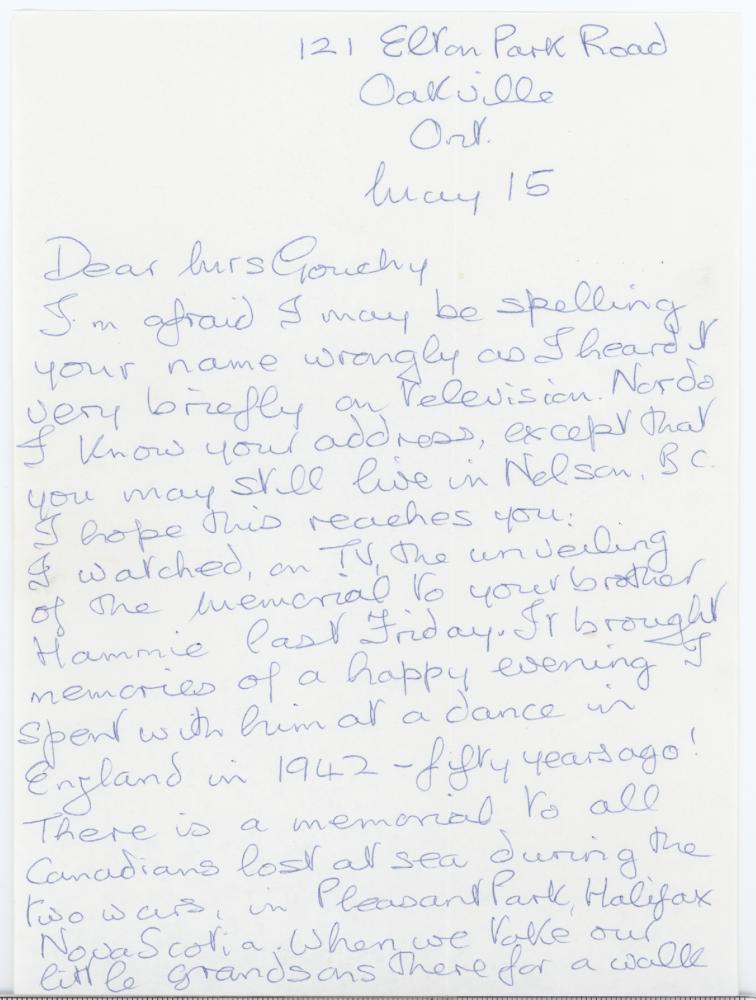 121 Elton Park Road
Oakville
Ont.
May 15
Dear Mrs Gouchy
I'm afraid I may be spelling
your name wrongly as I heard it
very briefly on television. Nor do
I know your address, except that
you may still live in Nelson, B C.
I hope this reaches you.
I watched, on TV, the unveiling
of the memorial to your brother
Hammie last Friday. It brought
memories of a happy evening I
spent with him at a dance in
England in 1942 - fifty years ago!
There is a memorial to all
Canadians lost at sea during the
two wars, in Pleasant Park, Halifax
Nova Scotia. When we take our
little grandsons there for a walk